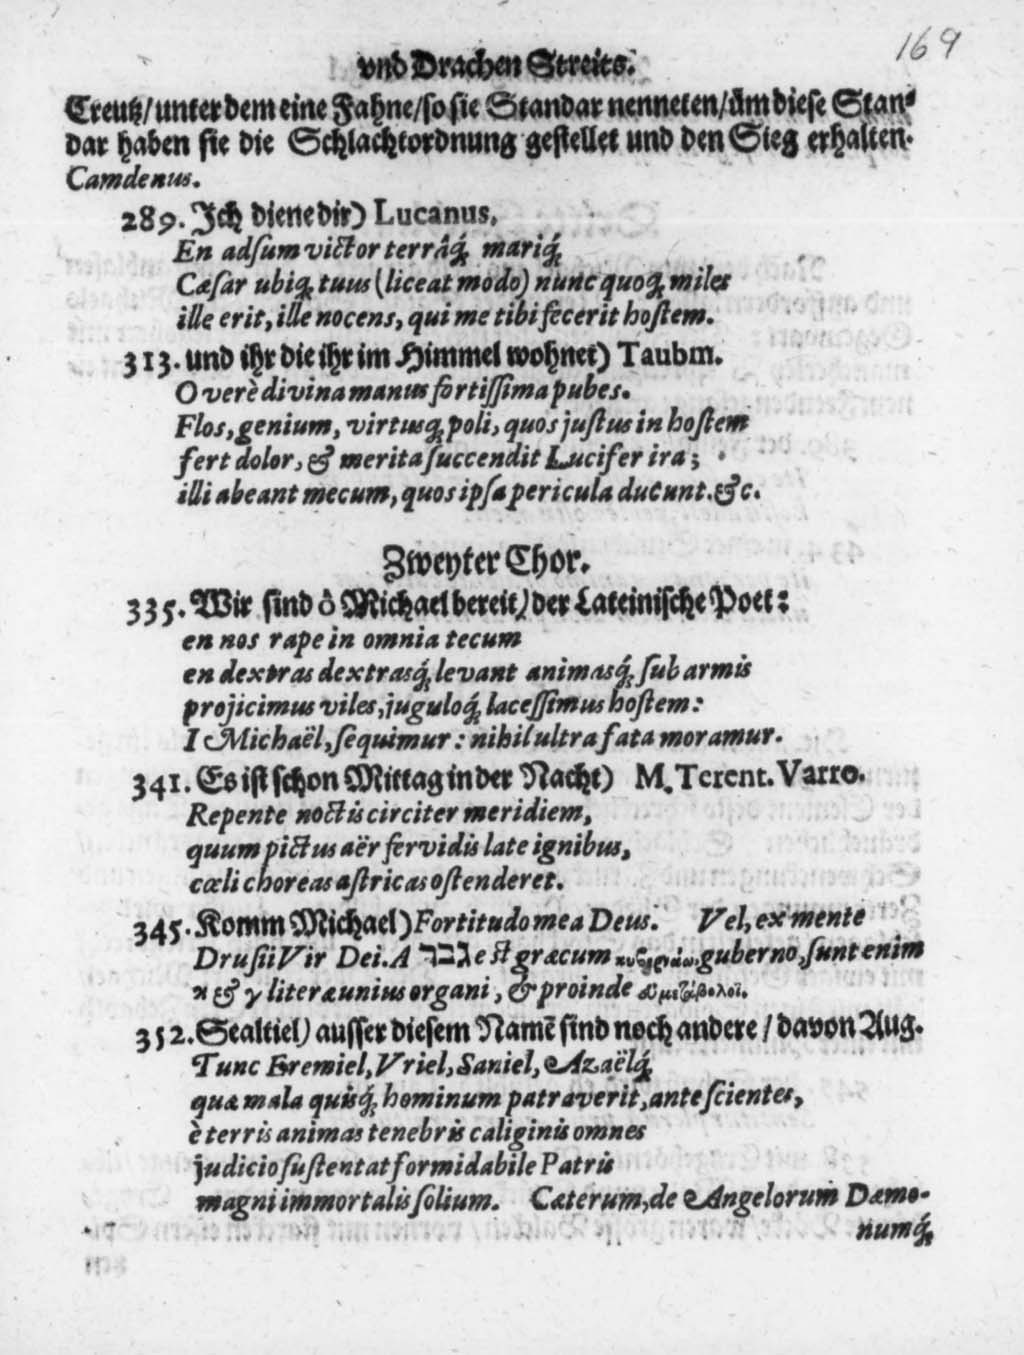 169
vnd Drachen Streits.
Creutz/unter dem eine Fahne/so sie Standar nenneten/üm diese Stan-
dar haben sie die Schlachtordnung gestellet und den Sieg erhalten.
Camdenus.
289. Jch diene dir) Lucanus.
En adſum victor terrâq́; mariq́;
Cæſar ubiq; tuus (liceat modo) nunc quoq; miles
ille erit, ille nocens, qui me tibi fecerit hoſtem.
313. und ihr die ihr im Himmel wohnet) Taubm.
O verè divina manus fortiſſima pubes.
Flos, genium, virtusq; poli, quos juſtus in hoſtem
fert dolor, & merita ſuccendit Lucifer ira;
illi abeant mecum, quos ipſa pericula ducunt. &c.
Zweyter Chor.
335. Wir sind ô Michael bereit) der Lateinische Poet:
en nos rape in omnia tecum
en dextras dextrasq́; levant animasq́; ſub armis
projicimus viles, juguloq́; laceſſimus hoſtem:
I Michaël, ſequimur: nihil ultra fata moramur.
341. Es ist schon Mittag in der Nacht) M. Terent. Varro.
Repente noctis circiter meridiem,
quum pictus aër fervidis late ignibus,
cœli choreas aſtricas oſtenderet.
345. Komm Michael) Fortitudo mea Deus. Vel, ex mente
Druſii Vir Dei. A גבר eſt græcum guberno, ſunt enim
ϰ & γ literæ unius organi, & proinde
352. Sealtiel) ausser diesem Namē sind noch andere / davon Aug.
Tunc Eremiel, Vriel, Saniel, Azaëlq́;
quæ mala quisq́; hominum patraverit, ante ſcientes,
è terris animas tenebris caliginis omnes
judicio ſuſtentat formidabile Patris
magni immortalis ſolium. Cæterum, de Angelorum Dæmo-
numq́;